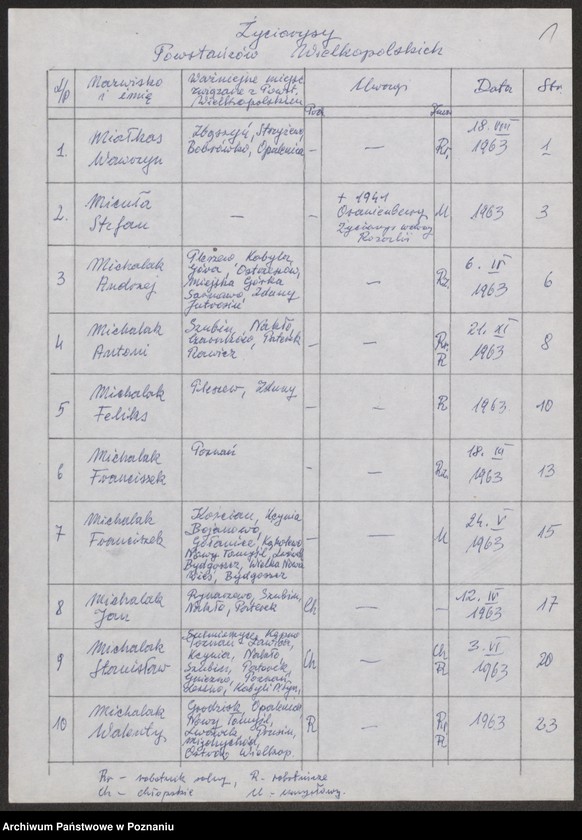 Życiorysy 1
Powstańców Wielkopolskich
L/p Nazwisko i imię Ważniejsze miejsc. związane z Powst. Wielkopolskim Poch. Uwagi Data Str.
1. Miałkas Wawrzyn Zbąszyń, Strzyżewo, Bobrówko, Opalenica – — Rr. 18. VIII 1963 1
2. Micuła Stefan — – + 1941 Oranienburg Życiorys wdowy Rozalii U 1963 3
3 Michalak Andrzej Pleszew, Kobyla Góra, Ostrzeszów, Miejska Górka Zduny Jutrosin – — Rz. 6. IV 1963 6
4 Michalak Antoni Szubin, Nakło, Czarnków, Rawicz – — Rr. R 21. XI 1963 8
5 Michalak Feliks Pleszew, Zduny – — R 1963 10
6 Michalak Franciszek Poznań – — Rz. 18. III 1963 13
7 Michalak Franciszek Kościan, Kcynia Bojanowo, Gołańcz, Kąkolewo Nowy Tomyśl, Bydgoszcz, Wielka Nowa Wieś, Bydgoszcz – — U 24. V 1963 15
8 Michalak Jan Rynarzewo, Szubin, Nakło, Ch — – 12. IV 1963 17
9 Michalak Stanisław Poznań – Ławica, Kcynia, Nakło Szubin, Gniezno, Poznań, Ch — Ch R 3. VI 1963 20
10 Michalak Walenty Grodzisk, Opalenica Nowy Tomyśl, Lwówek, Międzychód, Ostrów Wielkop R — Rr R 1963 23
Rr – robotnik rolny, R – robotnicze
Ch – chłopskie U – umysłowy.
Archiwum Państwowe w Poznaniu